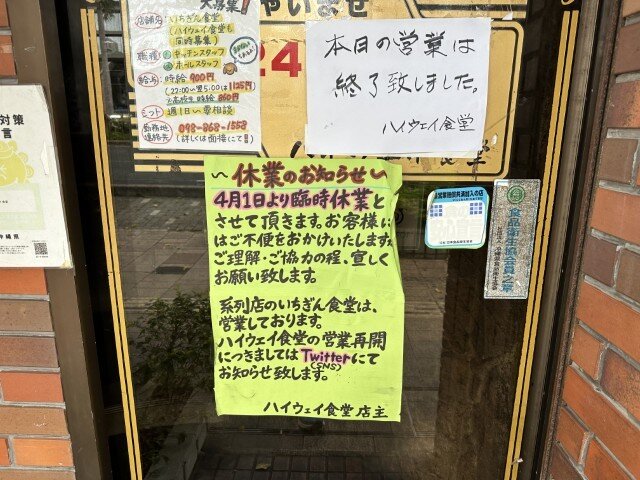 大募集!!
店舗先:いちぎん食堂
(ハイウェイ食堂も
同時募集)
職種:キッチンスタッフ
ホールスタッフ
給与:時給 900円
(22:00〜翌5:00は1125円)
シフト 週1日〜要相談
098-868-1558
(詳しくは面接にて)
24
本日の営業は
終了致しました。
ハイウェイ食堂
食堂
〜休業のお知らせ〜
4月1日より臨時休業と
させて頂きます。お客様に
はご不便をおかけいたします。
ご理解・ご協力の程、宜しく
お願い致します。
系列店のいちぎん食堂は、
営業しております。
ハイウェイ食堂の営業再開
につきましてはTwitterにて
(SNS)
お知らせ致します。
ハイウェイ食堂 店主
対策
言
沖縄県
食品衛生協会会員之章